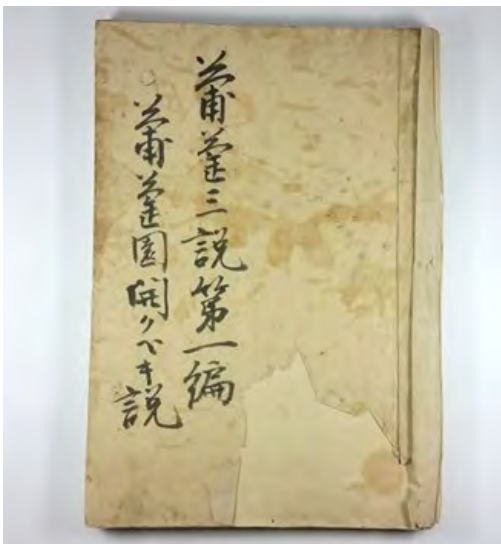 葡萄三説第一編
○葡萄園開クベキ説